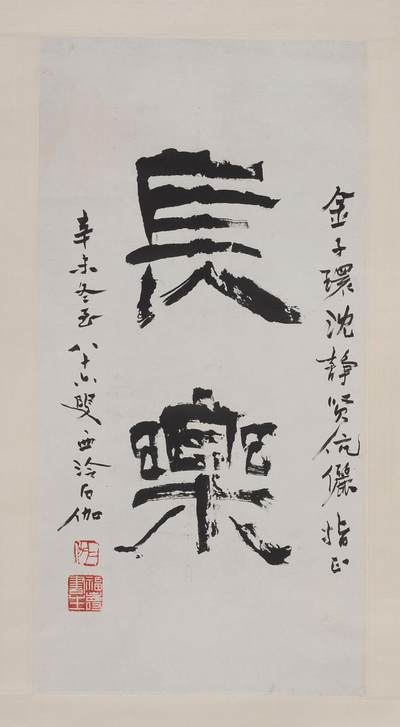 金子環沈靜賢伉儷指正
長樂
辛未冬至八十六叟西泠石伽